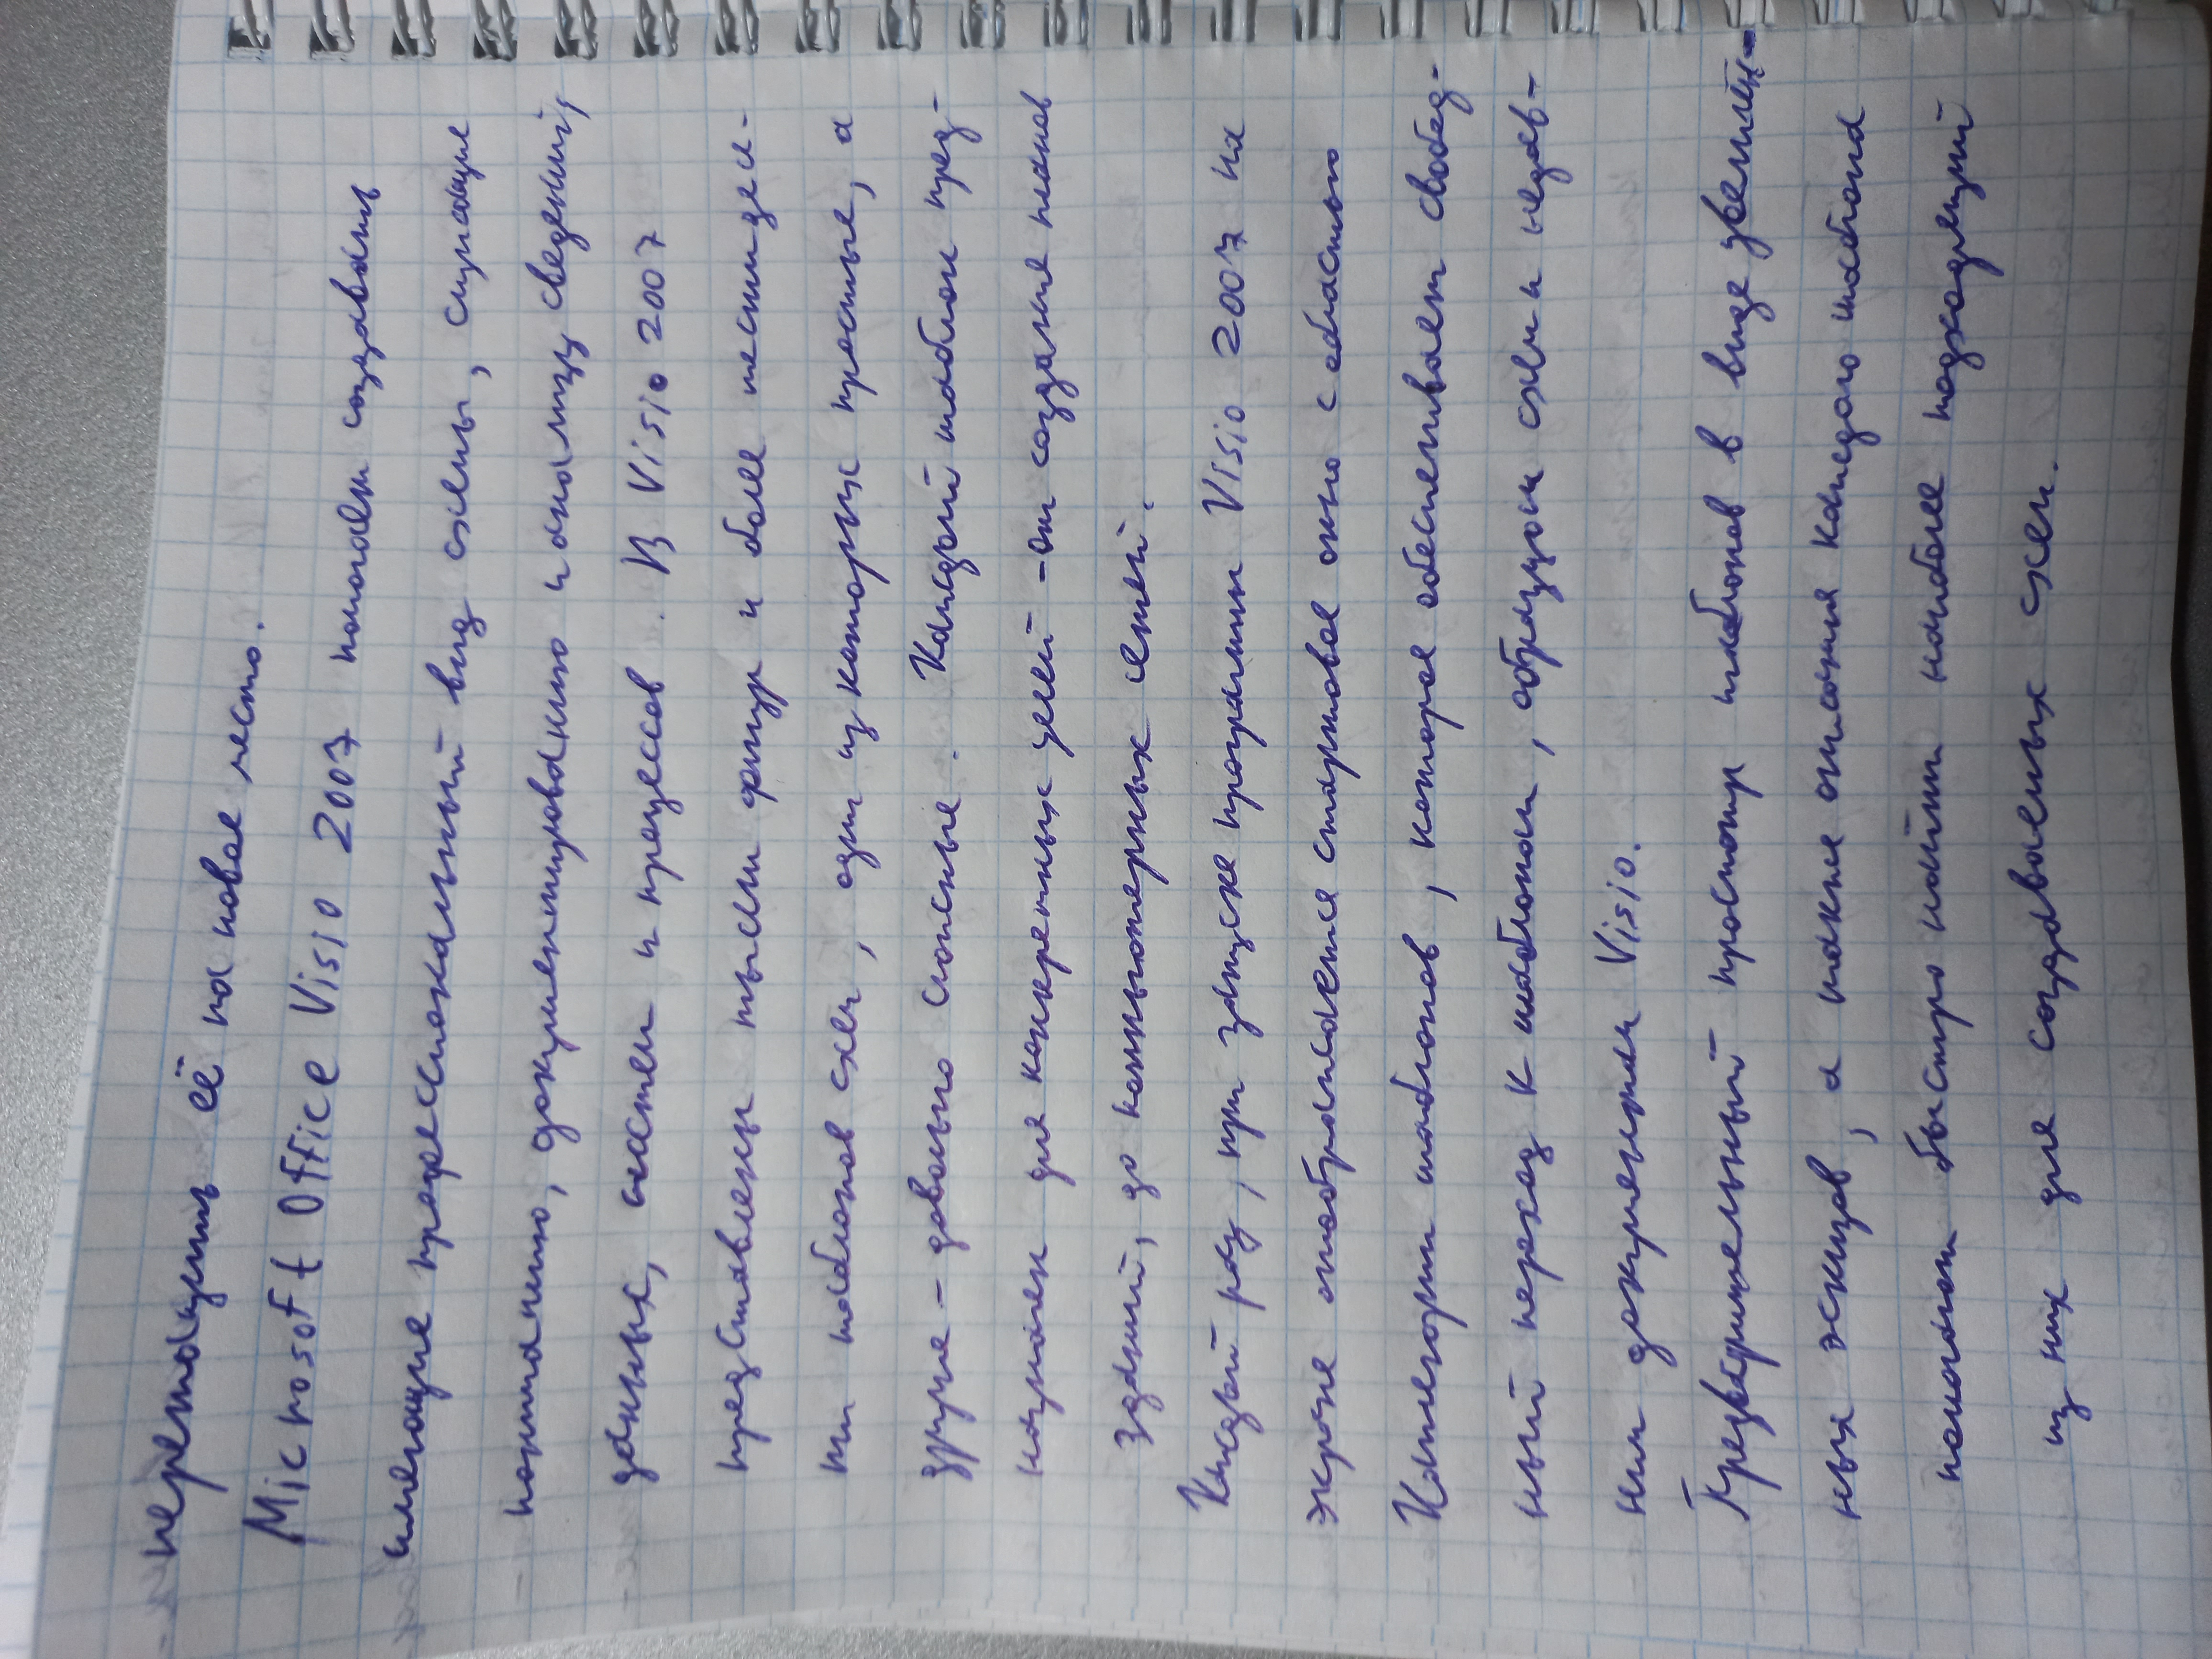 перетащить её на новое место.
Microsoft Office Visio 2007 помогает создавать
имеющие профессиональный вид схемы, служащие
пониманию, документированию и анализу сведений,
данных, систем и процессов. В Visio 2007
представлены тысячи фигур и более шестидеся-
ти шаблонов схем, одни из которых простые, а
другие - довольно сложные. Каждый шаблон пред-
назначен для конкретных целей - от создания планов
зданий, до компьютерных сетей.
Каждый раз, при запуске программы Visio 2007 на
экране отображается стартовое окно с областью
Категории шаблонов, которое обеспечивает свобод-
ный переход к шаблонам, образцам схем и недав-
ним документам Visio.
Предварительный просмотр шаблонов в виде увеличен-
ных эскизов, а также описания каждого шаблона
помогают быстро найти наиболее подходящий
из них для создаваемых схем.